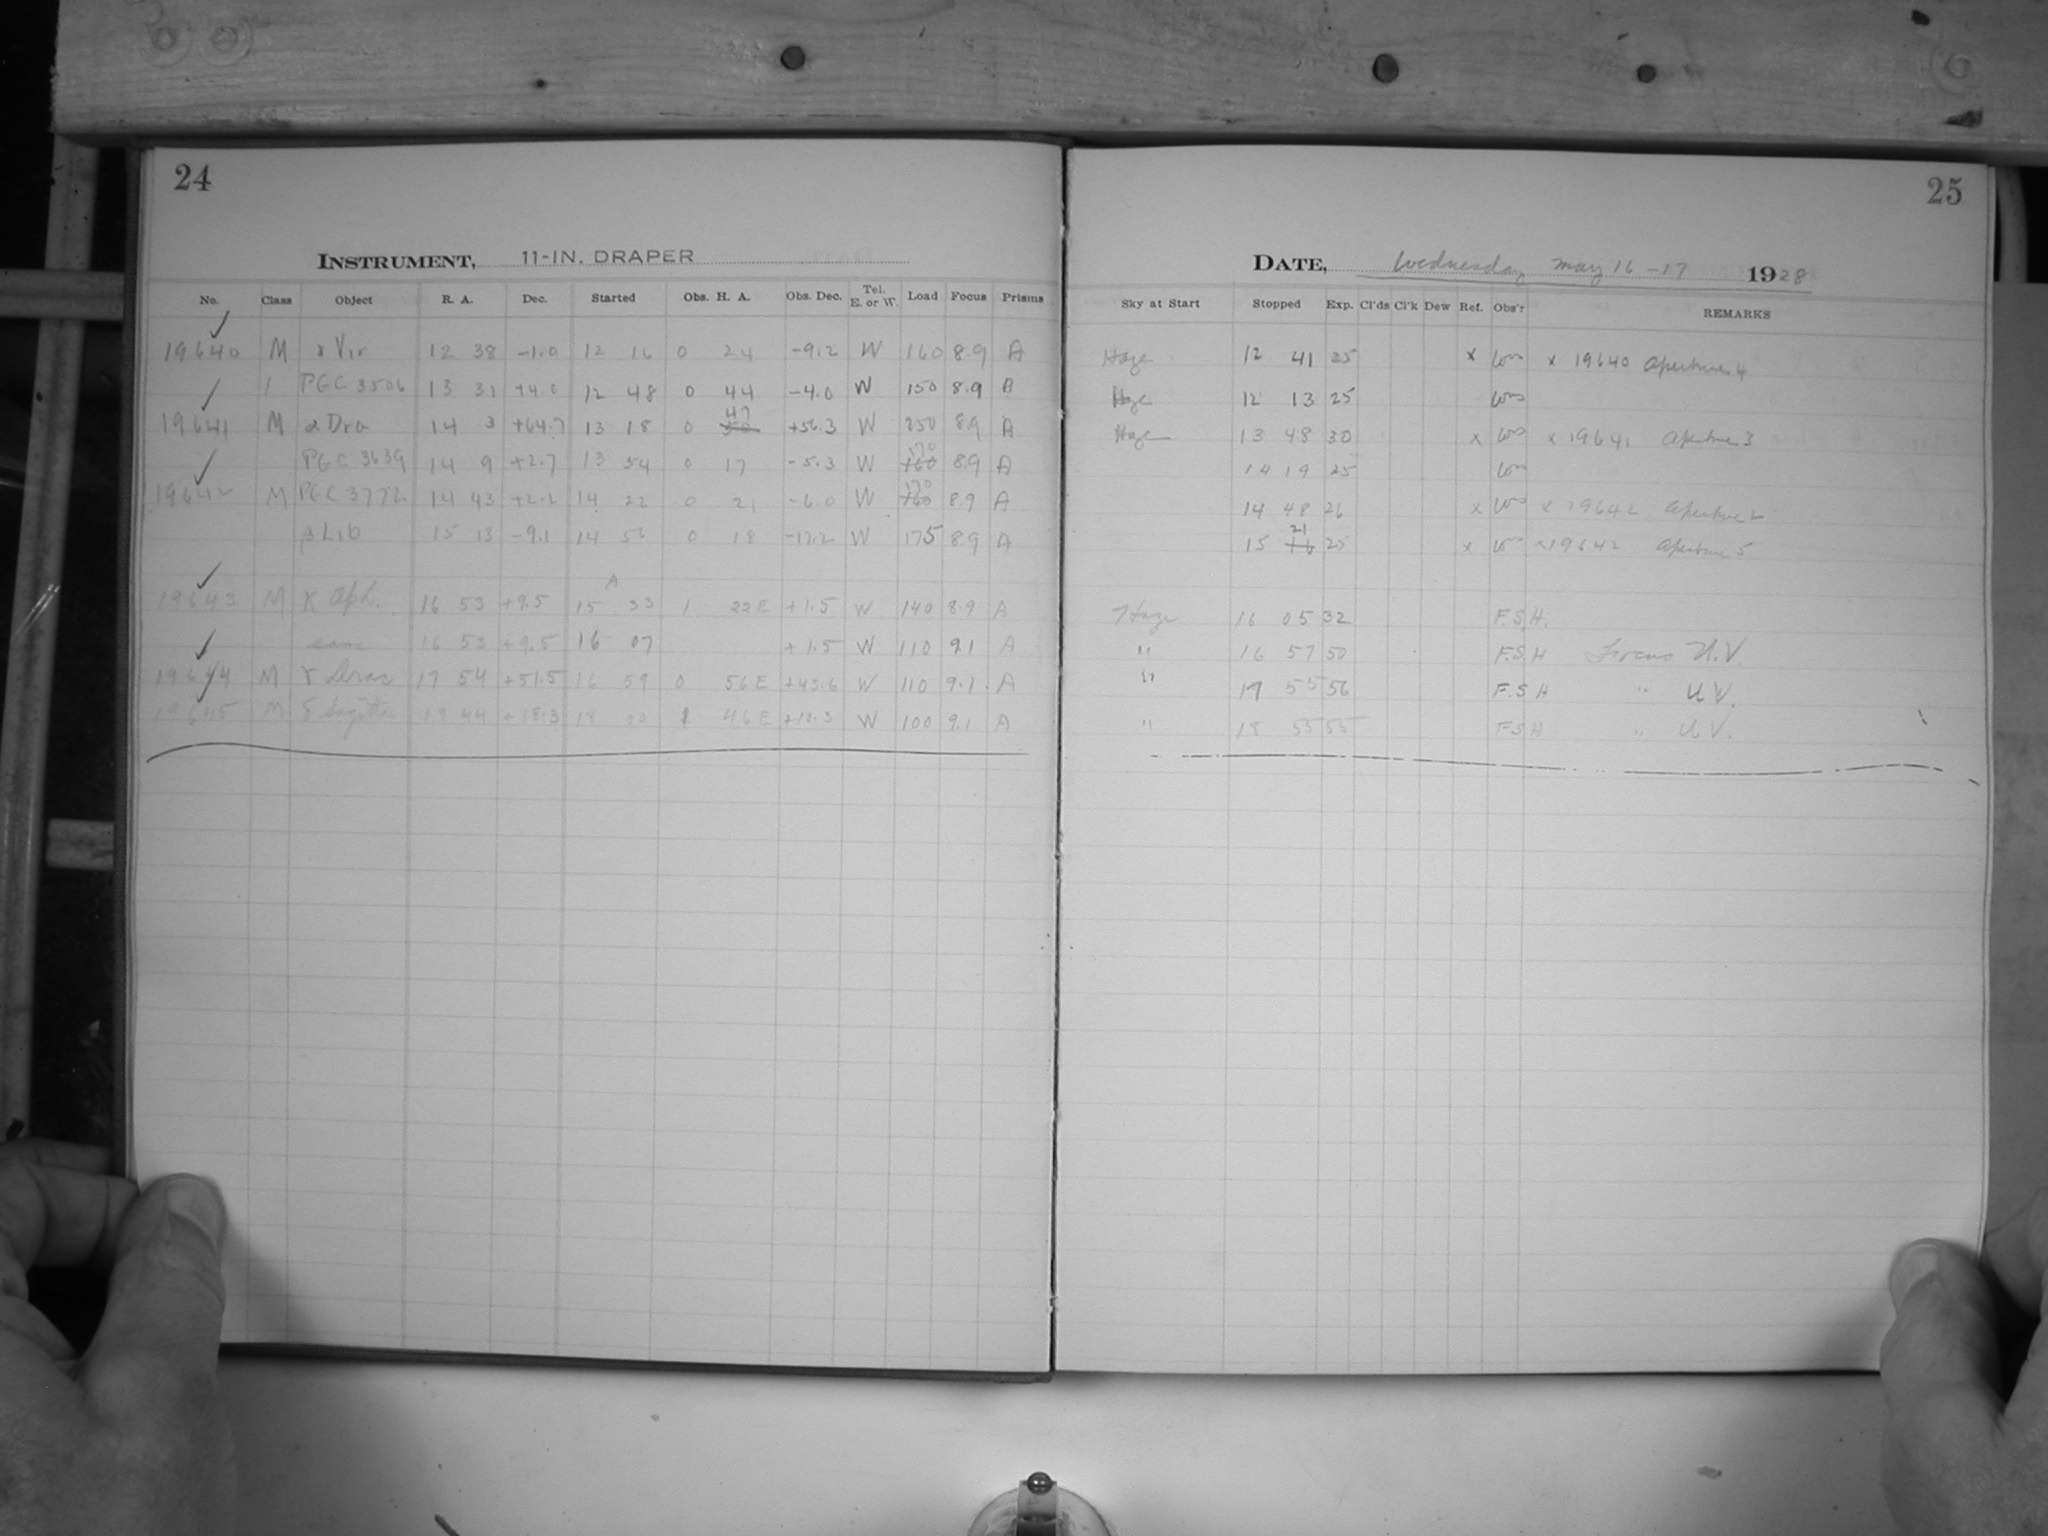 24
INSTRUMENT, 11-IN. DRAPER
No. Class Object R. A. Dec. Started Obs. H. A. Obs. Dec. Tel. E. or W. Load Focus Prisms
19640 M γ Vir 12 38 -1.0 12 16 0 24 -9.2 W 160 8.9 A
PGC 3506 13 31 +4.0 12 48 0 44 -4.0 W 150 8.9 A
19641 M α Dra 14 3 +64.7 13 18 0 47 +56.3 W 250 8.9 A
PGC 3639 14 9 +2.7 13 54 0 17 -5.3 W 170 160 8.9 A
19642 M PGC 3772 14 43 +2.2 14 22 0 21 -6.0 W 170 160 8.9 A
β Lib 15 13 -9.1 14 56 0 18 -17.2 W 175 8.9 A
19643 M K Oph. 16 53 +9.5 15 33 1 22 E +1.5 W 140 8.9 A
same 16 53 +9.5 16 07 +1.5 W 110 9.1 A
19644 M γ Drac 17 54 +51.5 16 59 0 56 E +43.6 W 110 9.1 A
19645 M δ Sagittae 19 44 +18.3 18 00 1 46 E W 100 9.1 A
25
DATE, Wednesday May 16-17 1928
Sky at Start Stopped Exp. Cl'ds Cl'k Dew Ref. Obs'r REMARKS
Haze 12 41 25 x x 19640 Aperture 4
Haze 12 13 25
Haze 13 48 30 x x 19641 Aperture 3
14 19 25
14 48 26 x x 19642 Aperture 2
15 21 25 x x 19642 Aperture 5
Haze 16 05 32 F.S.H.
" 16 57 50 F.S.H Focus U.V.
" 17 55 56 F.S H " U V.
" 18 55 55 F S H " U V.